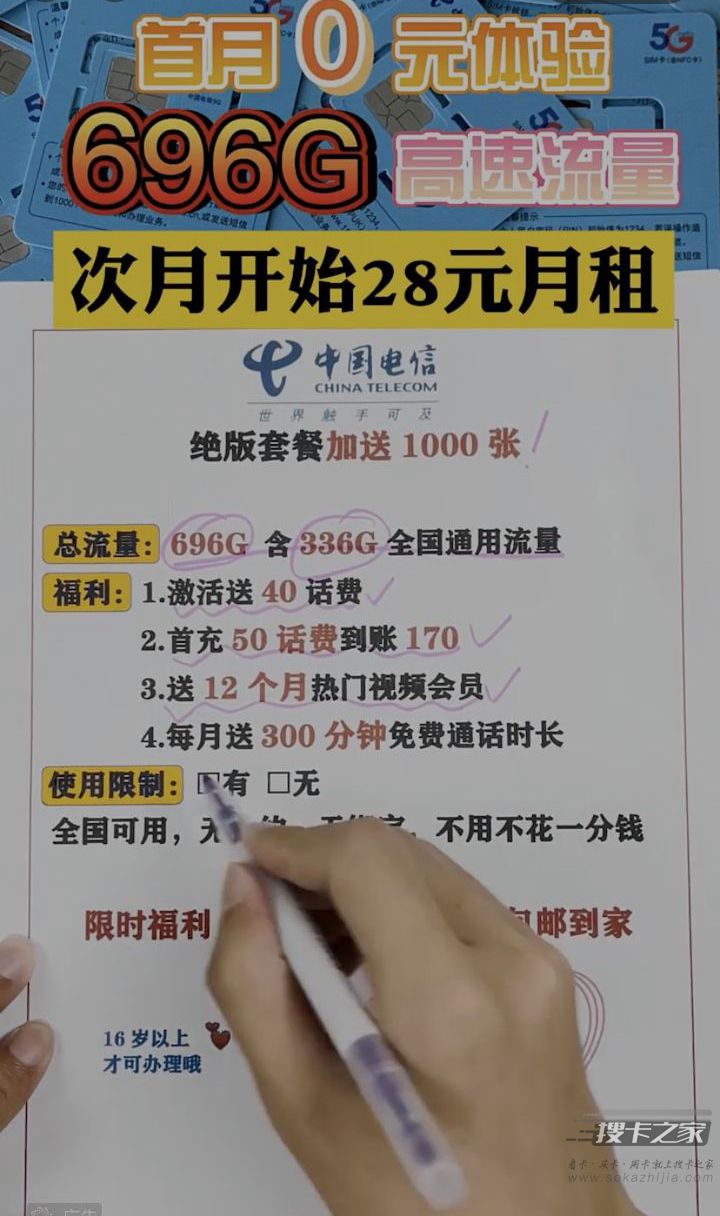 首月0元体验
696G 高速流量
次月开始28元月租
5G
SIM卡(含NFC卡)
中国电信
CHINA TELECOM
世界触手可及
绝版套餐加送 1000 张!
总流量: 696G 含 336G 全国通用流量
福利: 1.激活送 40 话费
2.首充 50 话费到账 170
3.送 12 个月热门视频会员
4.每月送 300 分钟免费通话时长
使用限制: □有 □无
全国可用,无 不用不花一分钱
限时福利 包邮到家
16 岁以上
才可办理哦
搜卡之家
看卡·买卡·用卡就上搜卡之家
www.sokazhijia.com
广告